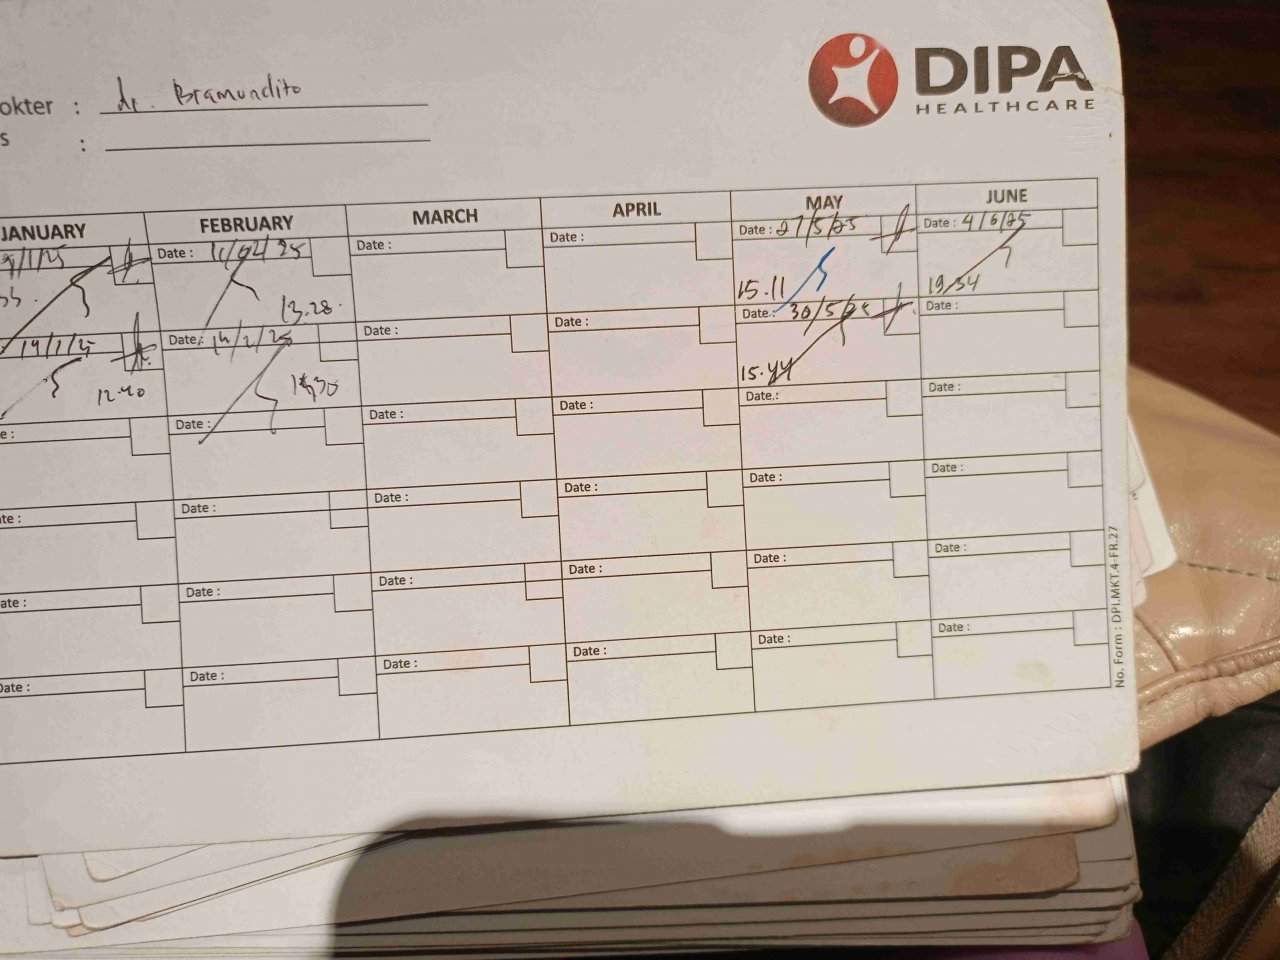 DIPA
HEALTHCARE
okter : dr. Bramundito
s :
JANUARY FEBRUARY MARCH APRIL MAY JUNE
/1/25 Date : 11/02/25 Date : Date : Date : 27/5/25 Date : 4/6/25
13.28 15.11 19.34
14/1/25 Date : 14/2/25 Date : Date : Date : 30/5/25 Date :
12.40 15.44
e : Date : Date : Date : Date : Date :
te : Date : Date : Date : Date : Date :
ate : Date : Date : Date : Date : Date :
Date : Date : Date : Date : Date : Date :
No. Form : DPI.MKT.4-FR.27